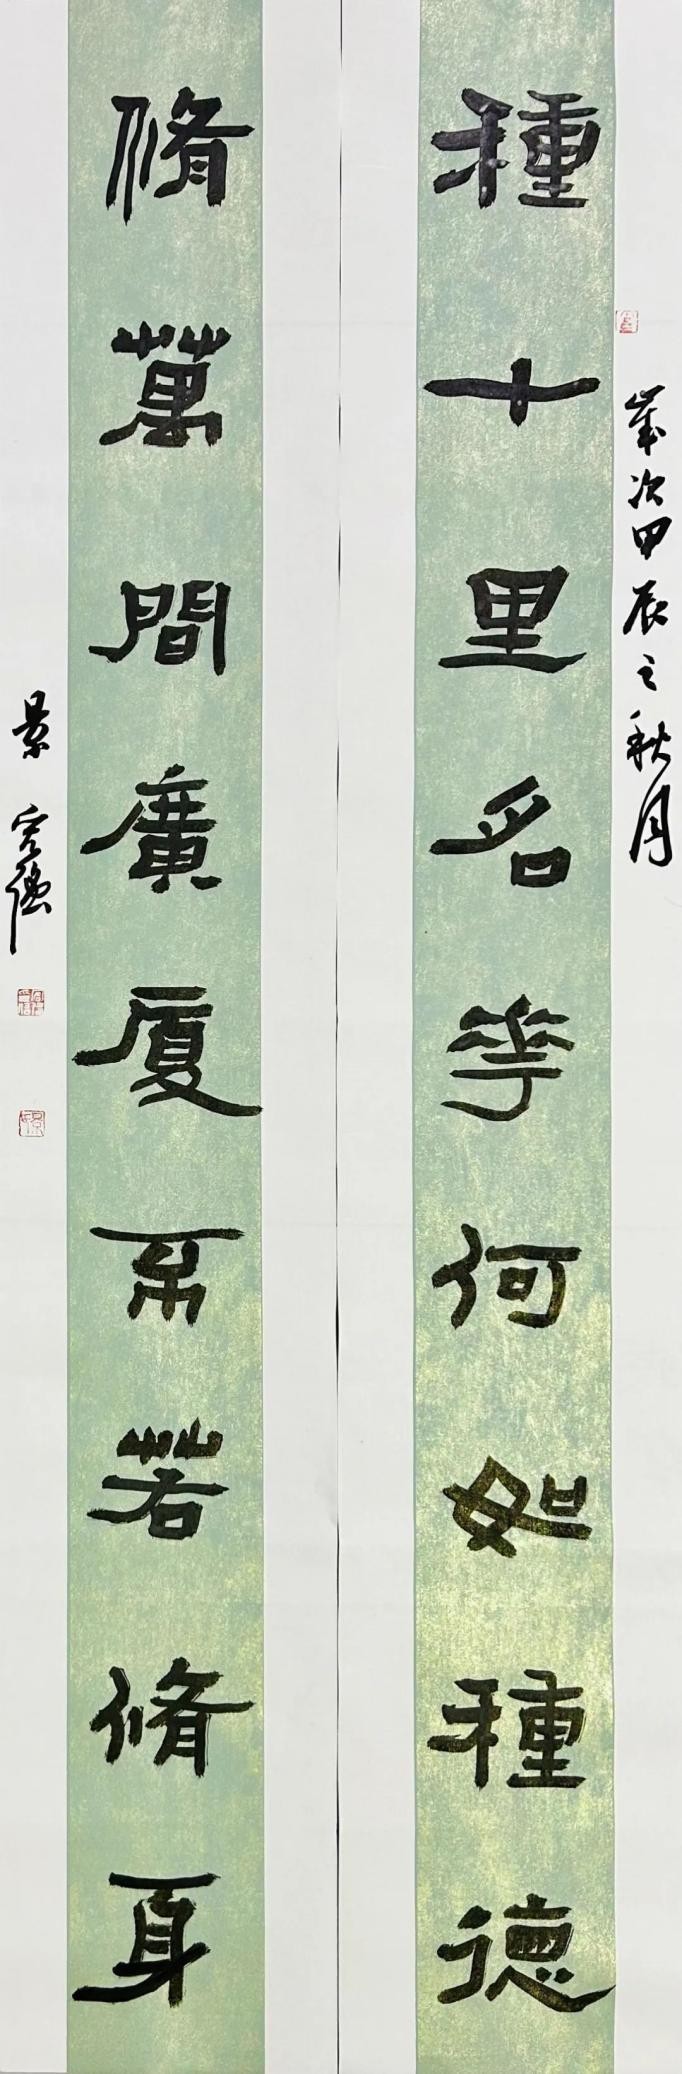 歲次甲辰之秋月
種十里名花何如種德
脩萬間廣厦不若脩身
景